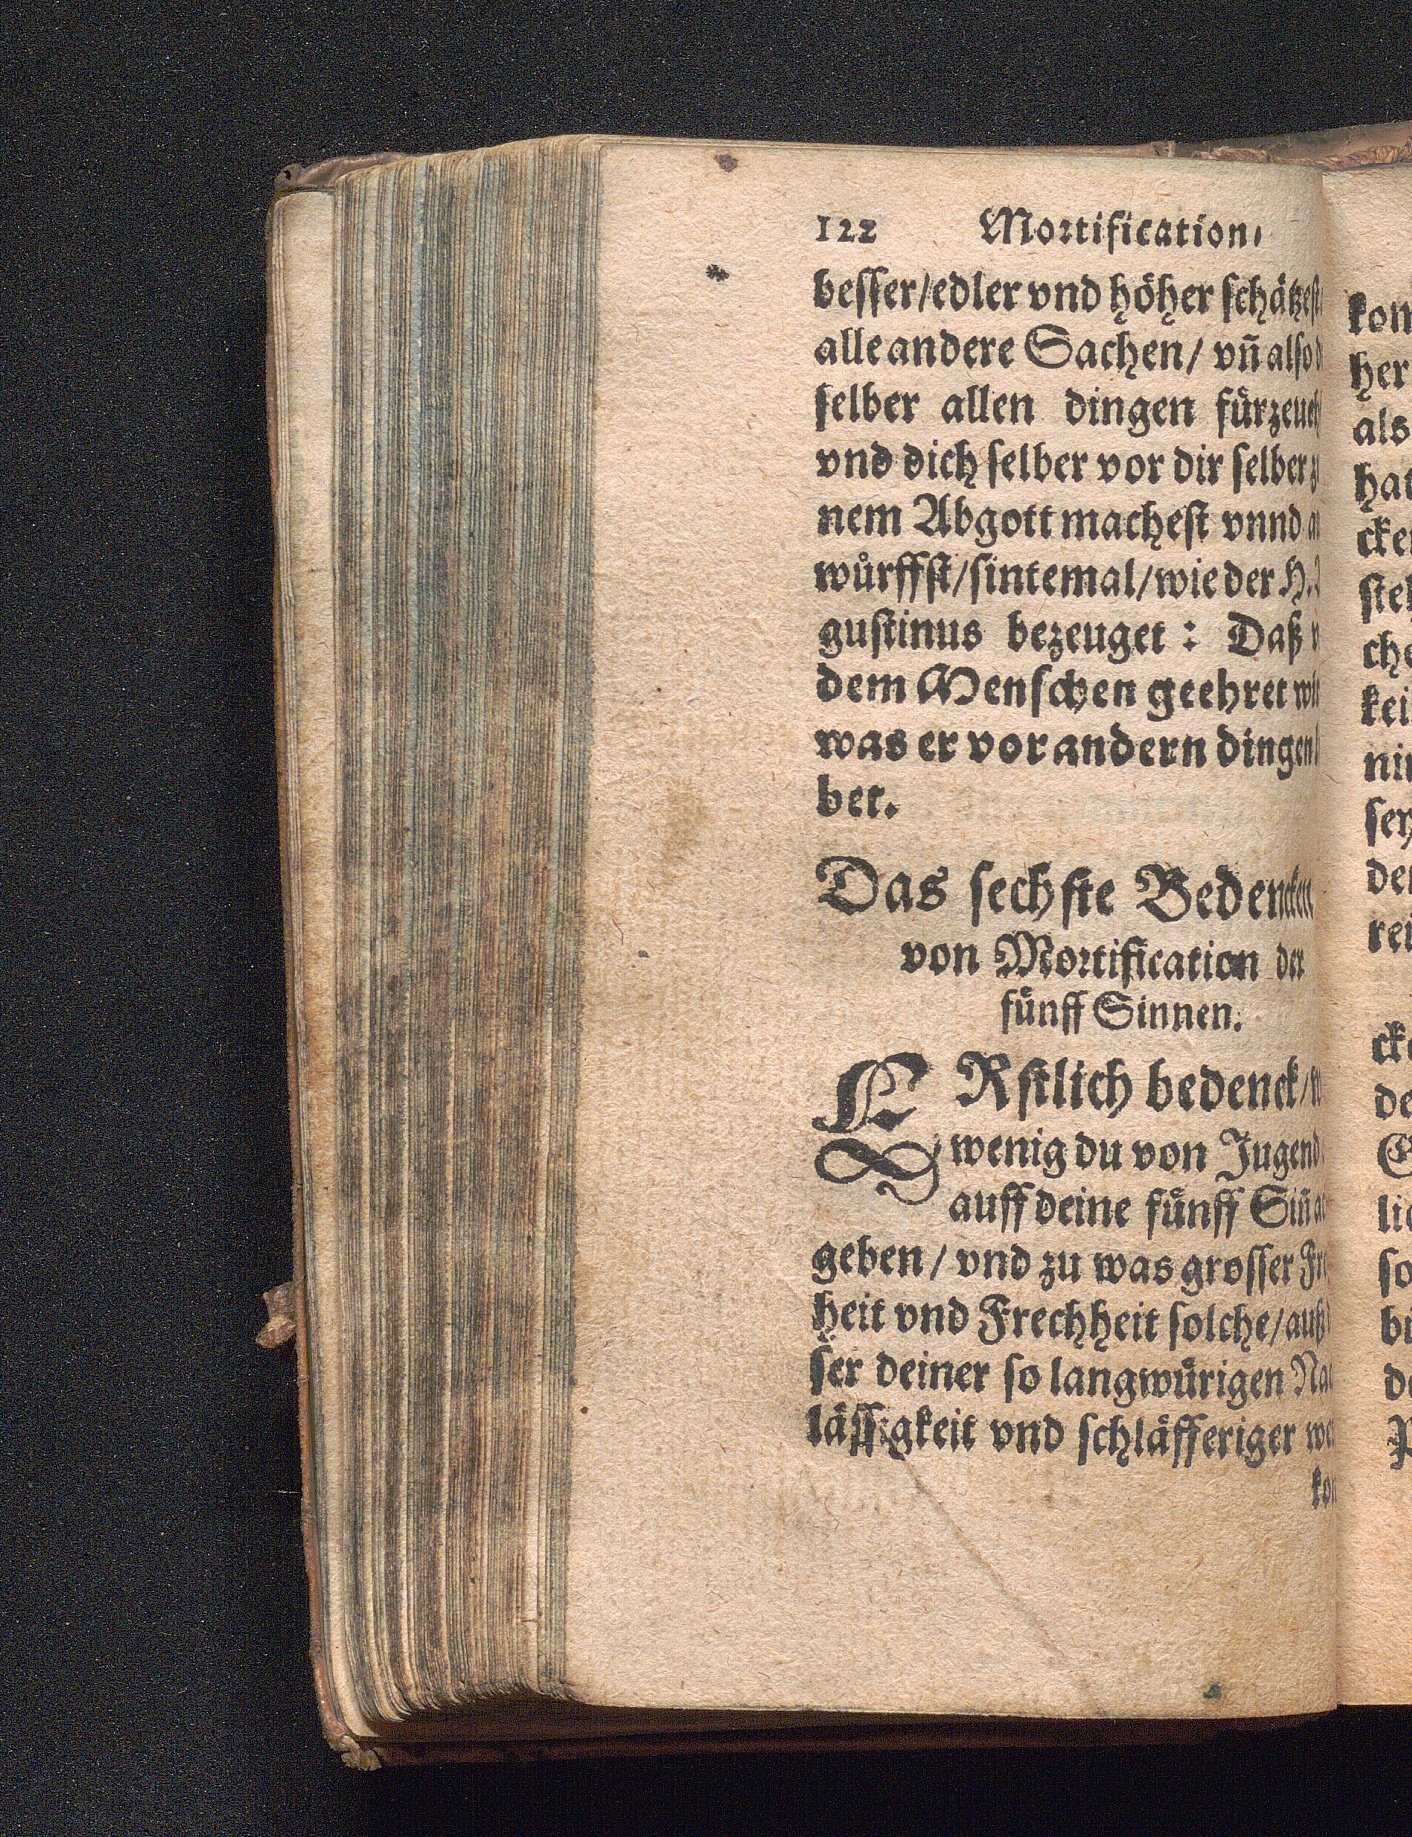 122 Mortification,
besser/edler vnd höher schätzest
alle andere Sachen/ vñ also
selber allen dingen fürzeuch
vnd dich selber vor dir selber
nem Abgott machest vnnd
würffst/sintemal/wie der H.
gustinus bezeuget: Daß
dem Menschen geehret
was er vor andern dingen
bet.
Das sechste Bedencken
von Mortification der
fünff Sinnen.
ERstlich bedenck/
wenig du von Jugend
auff deine fünff Siñ
geben/ vnd zu was grosser
heit vnd Frechheit solche/auß
ser deiner so langwürigen
lässigkeit vnd schläfferiger
kom
her
als
hat
cken
steh
che
kei
nin
sey
den
rei
cke
de
lic
so
bi
de